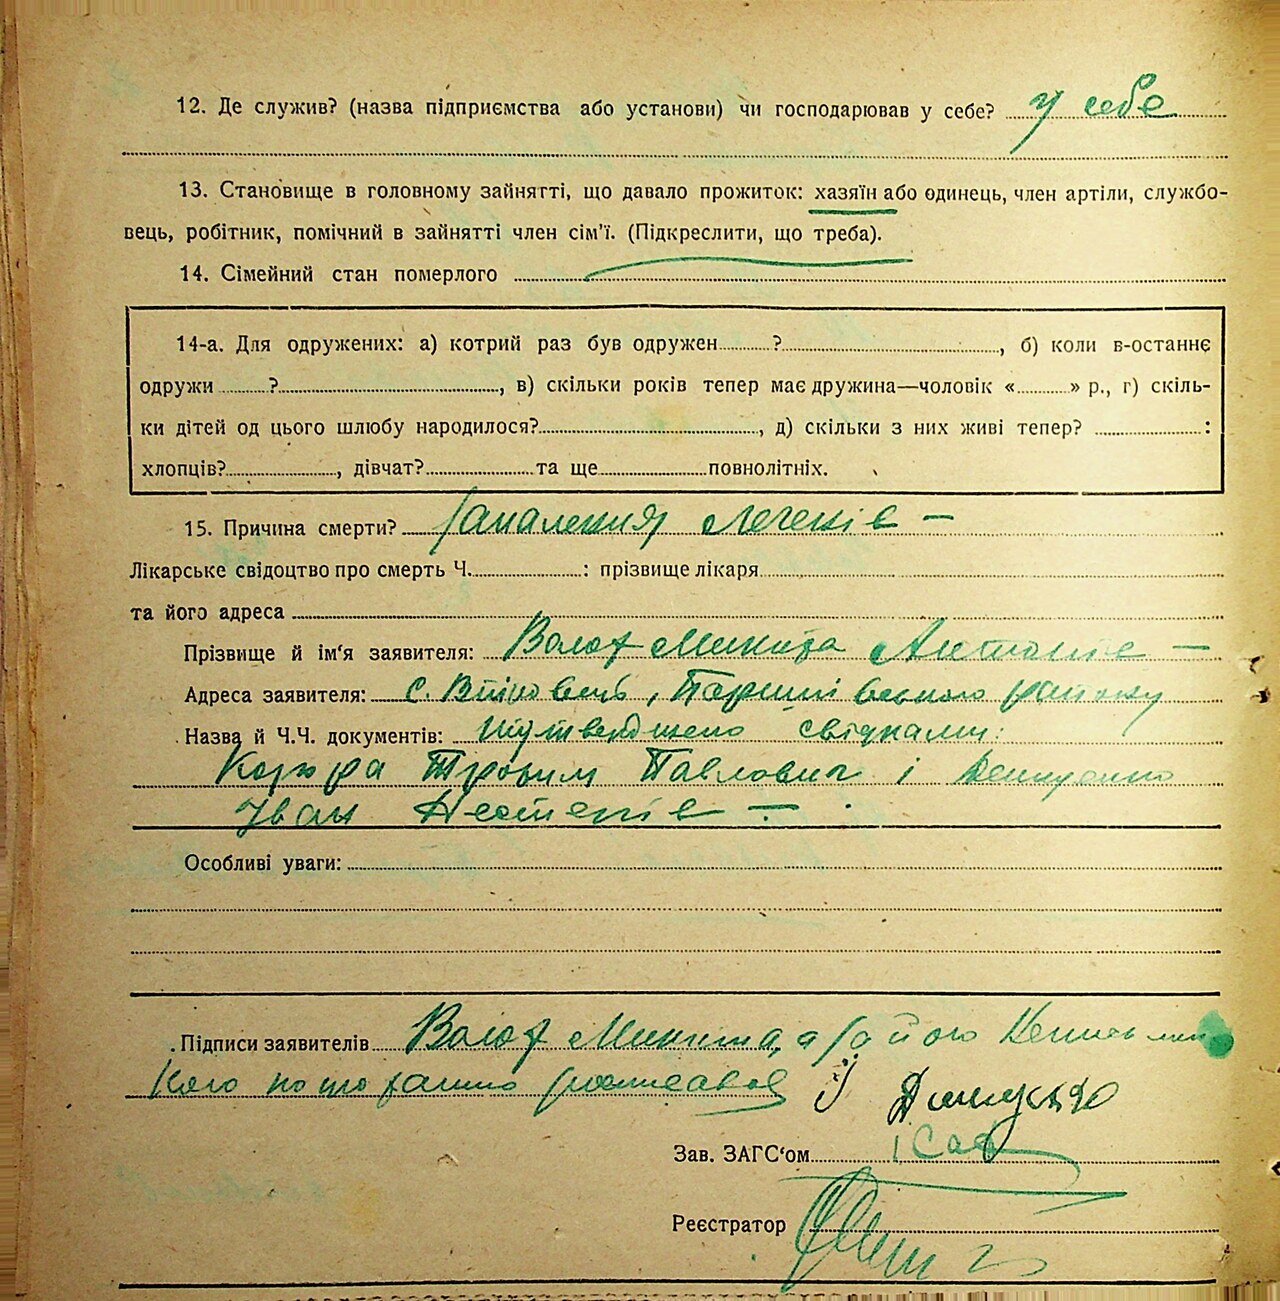 12. Де служив? (назва підприємства або установи) чи господарював у себе? у себе
13. Становище в головному зайнятті, що давало прожиток: хазяїн або одинець, член артіли, службо-
вець, робітник, помічний в зайнятті член сім'ї. (Підкреслити, що треба).
14. Сімейний стан померлого
14-а. Для одружених: а) котрий раз був одружен ? , б) коли в-останнє
одружи ? , в) скільки років тепер має дружина—чоловік « » р., г) скіль-
ки дітей од цього шлюбу народилося? , д) скільки з них живі тепер? :
хлопців? , дівчат? та ще повнолітніх.
15. Причина смерти? Запалення легенів —
Лікарське свідоцтво про смерть Ч. : прізвище лікаря
та його адреса
Прізвище й ім'я заявителя: Волох Микита —
Адреса заявителя: с. району
Назва й Ч.Ч. документів: свідками:
Трохим Павлович і
Іван —
Особливі уваги:
Підписи заявителів Волох Микита, а за його
Зав. ЗАГС'ом
Реєстратор